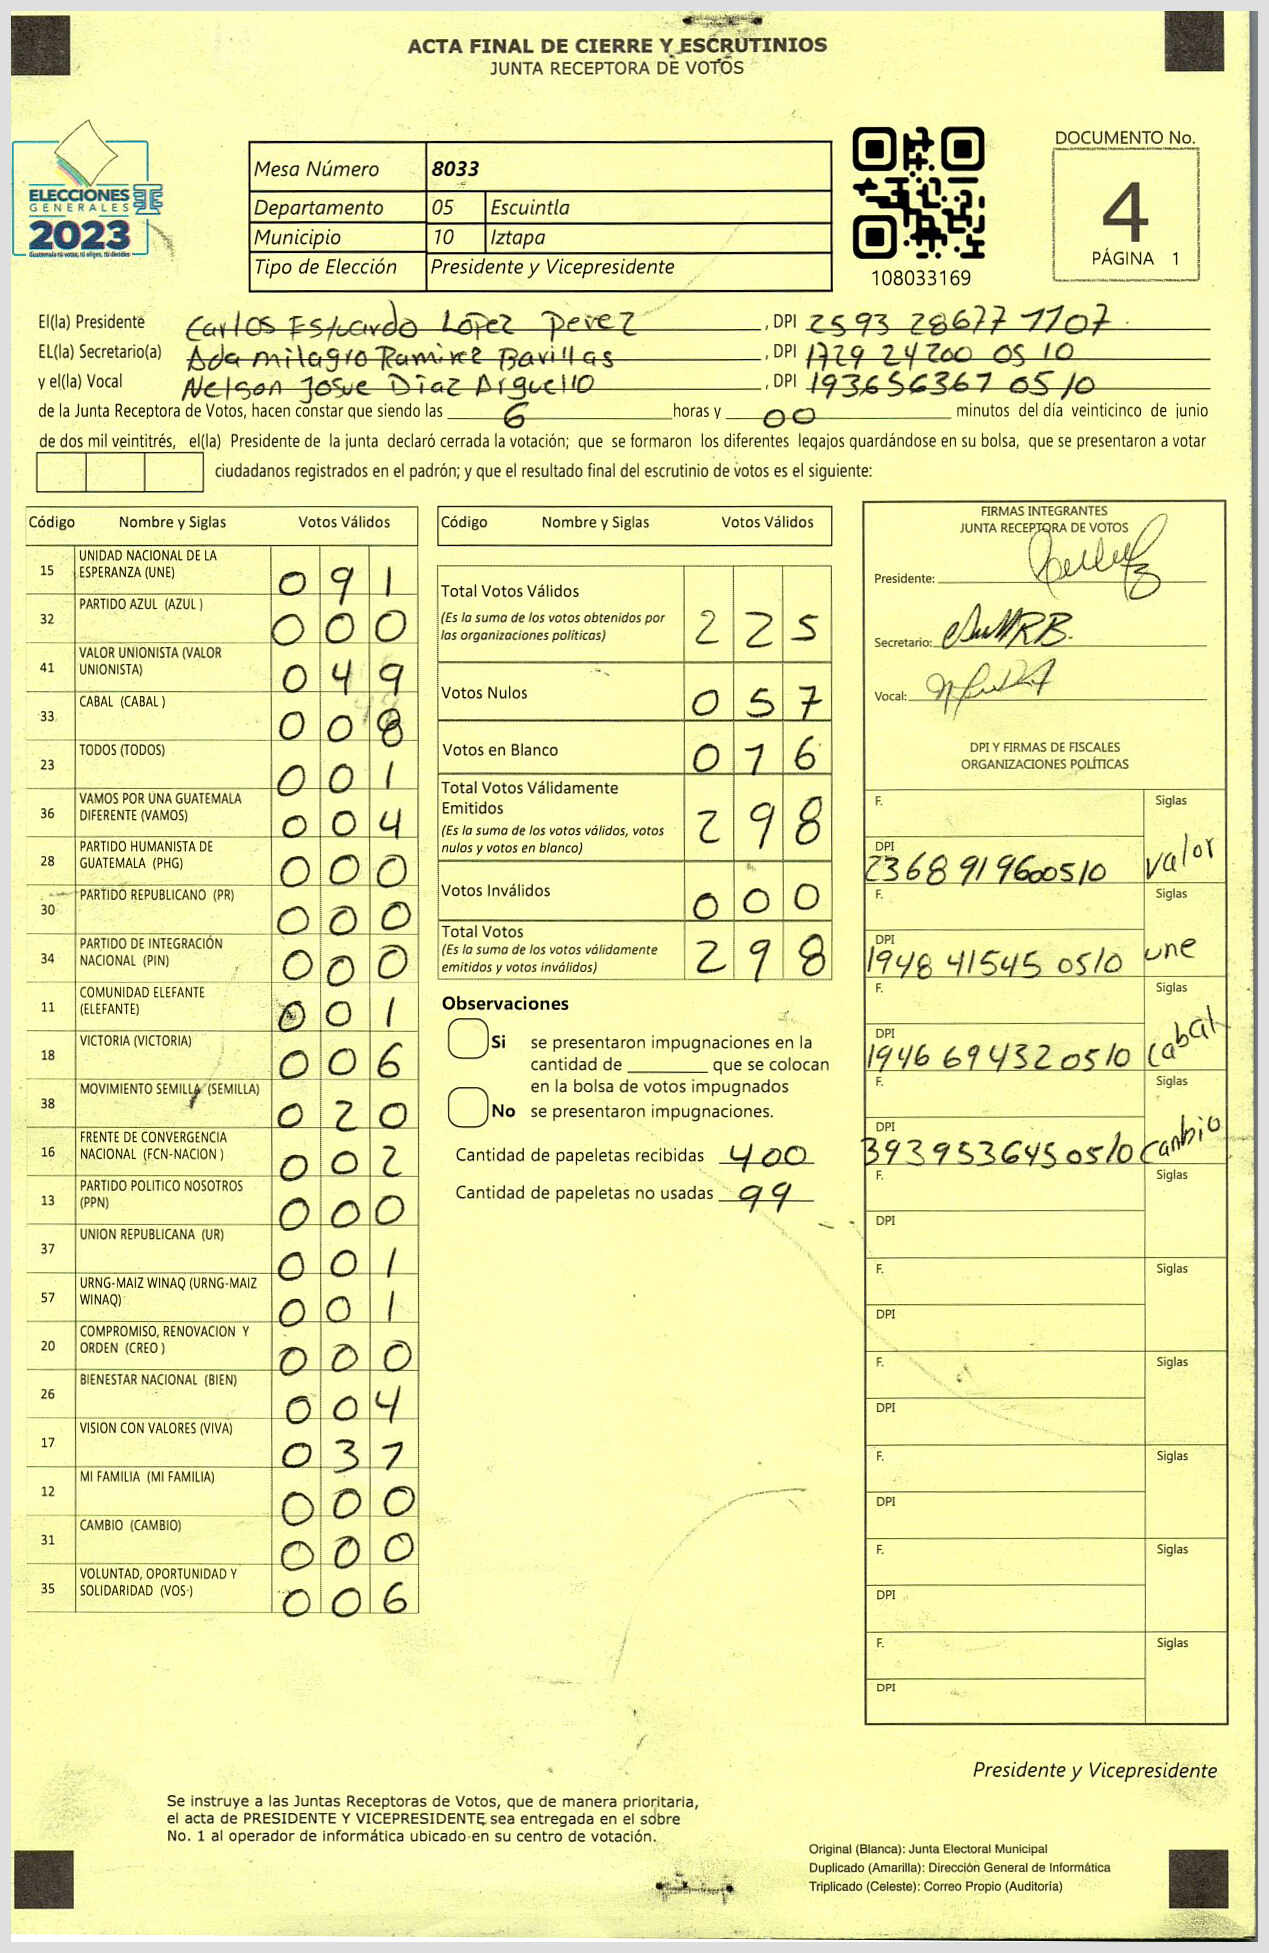 ACTA FINAL DE CIERRE Y ESCRUTINIOS
JUNTA RECEPTORA DE VOTOS
ELECCIONES
GENERALES
2023
Guatemala tú votas, tú eliges, tú decides
Mesa Número 8033
Departamento 05 Escuintla
Municipio 10 Iztapa
Tipo de Elección Presidente y Vicepresidente
108033169
DOCUMENTO No.
4
PÁGINA 1
El(la) Presidente Carlos Estuardo López Perez, DPI 2593 28677 1107
EL(la) Secretario(a) Ada milagro Ramirez Bavillas, DPI 1729 24200 05 10
y el(la) Vocal Nelson Josue Diaz Arguello, DPI 193656367 0510
de la Junta Receptora de Votos, hacen constar que siendo las 6 horas y 00 minutos del día veinticinco de junio
de dos mil veintitrés, el(la) Presidente de la junta declaró cerrada la votación; que se formaron los diferentes legajos guardándose en su bolsa, que se presentaron a votar
ciudadanos registrados en el padrón; y que el resultado final del escrutinio de votos es el siguiente:
Código Nombre y Siglas Votos Válidos
15 UNIDAD NACIONAL DE LA ESPERANZA (UNE) 091
32 PARTIDO AZUL (AZUL ) 000
41 VALOR UNIONISTA (VALOR UNIONISTA) 049
33 CABAL (CABAL ) 008
23 TODOS (TODOS) 001
36 VAMOS POR UNA GUATEMALA DIFERENTE (VAMOS) 004
28 PARTIDO HUMANISTA DE GUATEMALA (PHG) 000
30 PARTIDO REPUBLICANO (PR) 000
34 PARTIDO DE INTEGRACIÓN NACIONAL (PIN) 000
11 COMUNIDAD ELEFANTE (ELEFANTE) 001
18 VICTORIA (VICTORIA) 006
38 MOVIMIENTO SEMILLA (SEMILLA) 020
16 FRENTE DE CONVERGENCIA NACIONAL (FCN-NACION ) 002
13 PARTIDO POLITICO NOSOTROS (PPN) 000
37 UNION REPUBLICANA (UR) 001
57 URNG-MAIZ WINAQ (URNG-MAIZ WINAQ) 001
20 COMPROMISO, RENOVACION Y ORDEN (CREO ) 000
26 BIENESTAR NACIONAL (BIEN) 004
17 VISION CON VALORES (VIVA) 037
12 MI FAMILIA (MI FAMILIA) 000
31 CAMBIO (CAMBIO) 000
35 VOLUNTAD, OPORTUNIDAD Y SOLIDARIDAD (VOS ) 006
Código Nombre y Siglas Votos Válidos
Total Votos Válidos
(Es la suma de los votos obtenidos por
las organizaciones políticas) 225
Votos Nulos 057
Votos en Blanco 016
Total Votos Válidamente
Emitidos
(Es la suma de los votos válidos, votos
nulos y votos en blanco) 298
Votos Inválidos 000
Total Votos
(Es la suma de los votos válidamente
emitidos y votos inválidos) 298
Observaciones
Si se presentaron impugnaciones en la
cantidad de ________ que se colocan
en la bolsa de votos impugnados
No se presentaron impugnaciones.
Cantidad de papeletas recibidas 400
Cantidad de papeletas no usadas 99
FIRMAS INTEGRANTES
JUNTA RECEPTORA DE VOTOS
Presidente:
Secretario:
Vocal:
DPI Y FIRMAS DE FISCALES
ORGANIZACIONES POLÍTICAS
F. Siglas
DPI 2368 91960 0510 valor
F. Siglas
DPI 1948 41545 0510 une
F. Siglas
DPI 1946 69432 0510 cabal
F. Siglas
DPI 393953645 0510 cambio
F. Siglas
DPI
F. Siglas
DPI
F. Siglas
DPI
F. Siglas
DPI
F. Siglas
DPI
F. Siglas
DPI
Presidente y Vicepresidente
Se instruye a las Juntas Receptoras de Votos, que de manera prioritaria,
el acta de PRESIDENTE Y VICEPRESIDENTE, sea entregada en el sobre
No. 1 al operador de informática ubicado en su centro de votación.
Original (Blanca): Junta Electoral Municipal
Duplicado (Amarilla): Dirección General de Informática
Triplicado (Celeste): Correo Propio (Auditoría)